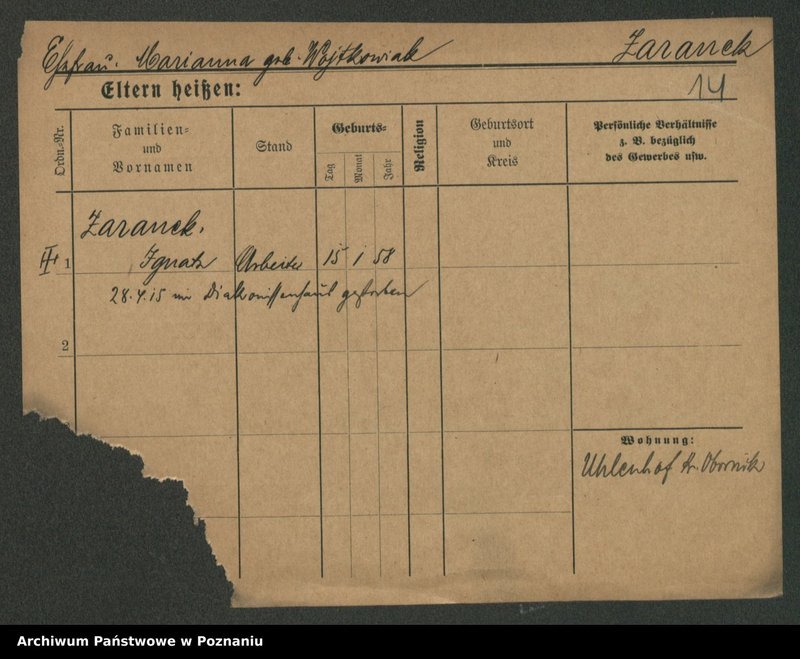 Ehefrau. Marianna geb. Wojtkowiak
Zaranek
14
Eltern heißen:
Ordn.-Nr.
Familien-
und
Vornamen
Stand
Geburts-
Tag
Monat
Jahr
Religion
Geburtsort
und
Kreis
Persönliche Verhältnisse
z. B. bezüglich
des Gewerbes usw.
Zaranek.
1 Ignatz Arbeiter 15 1 58
28.4.15 im Diakonissenhaus gestorben
2
Wohnung:
Uhlenhof Kr. Obornik
Archiwum Państwowe w Poznaniu